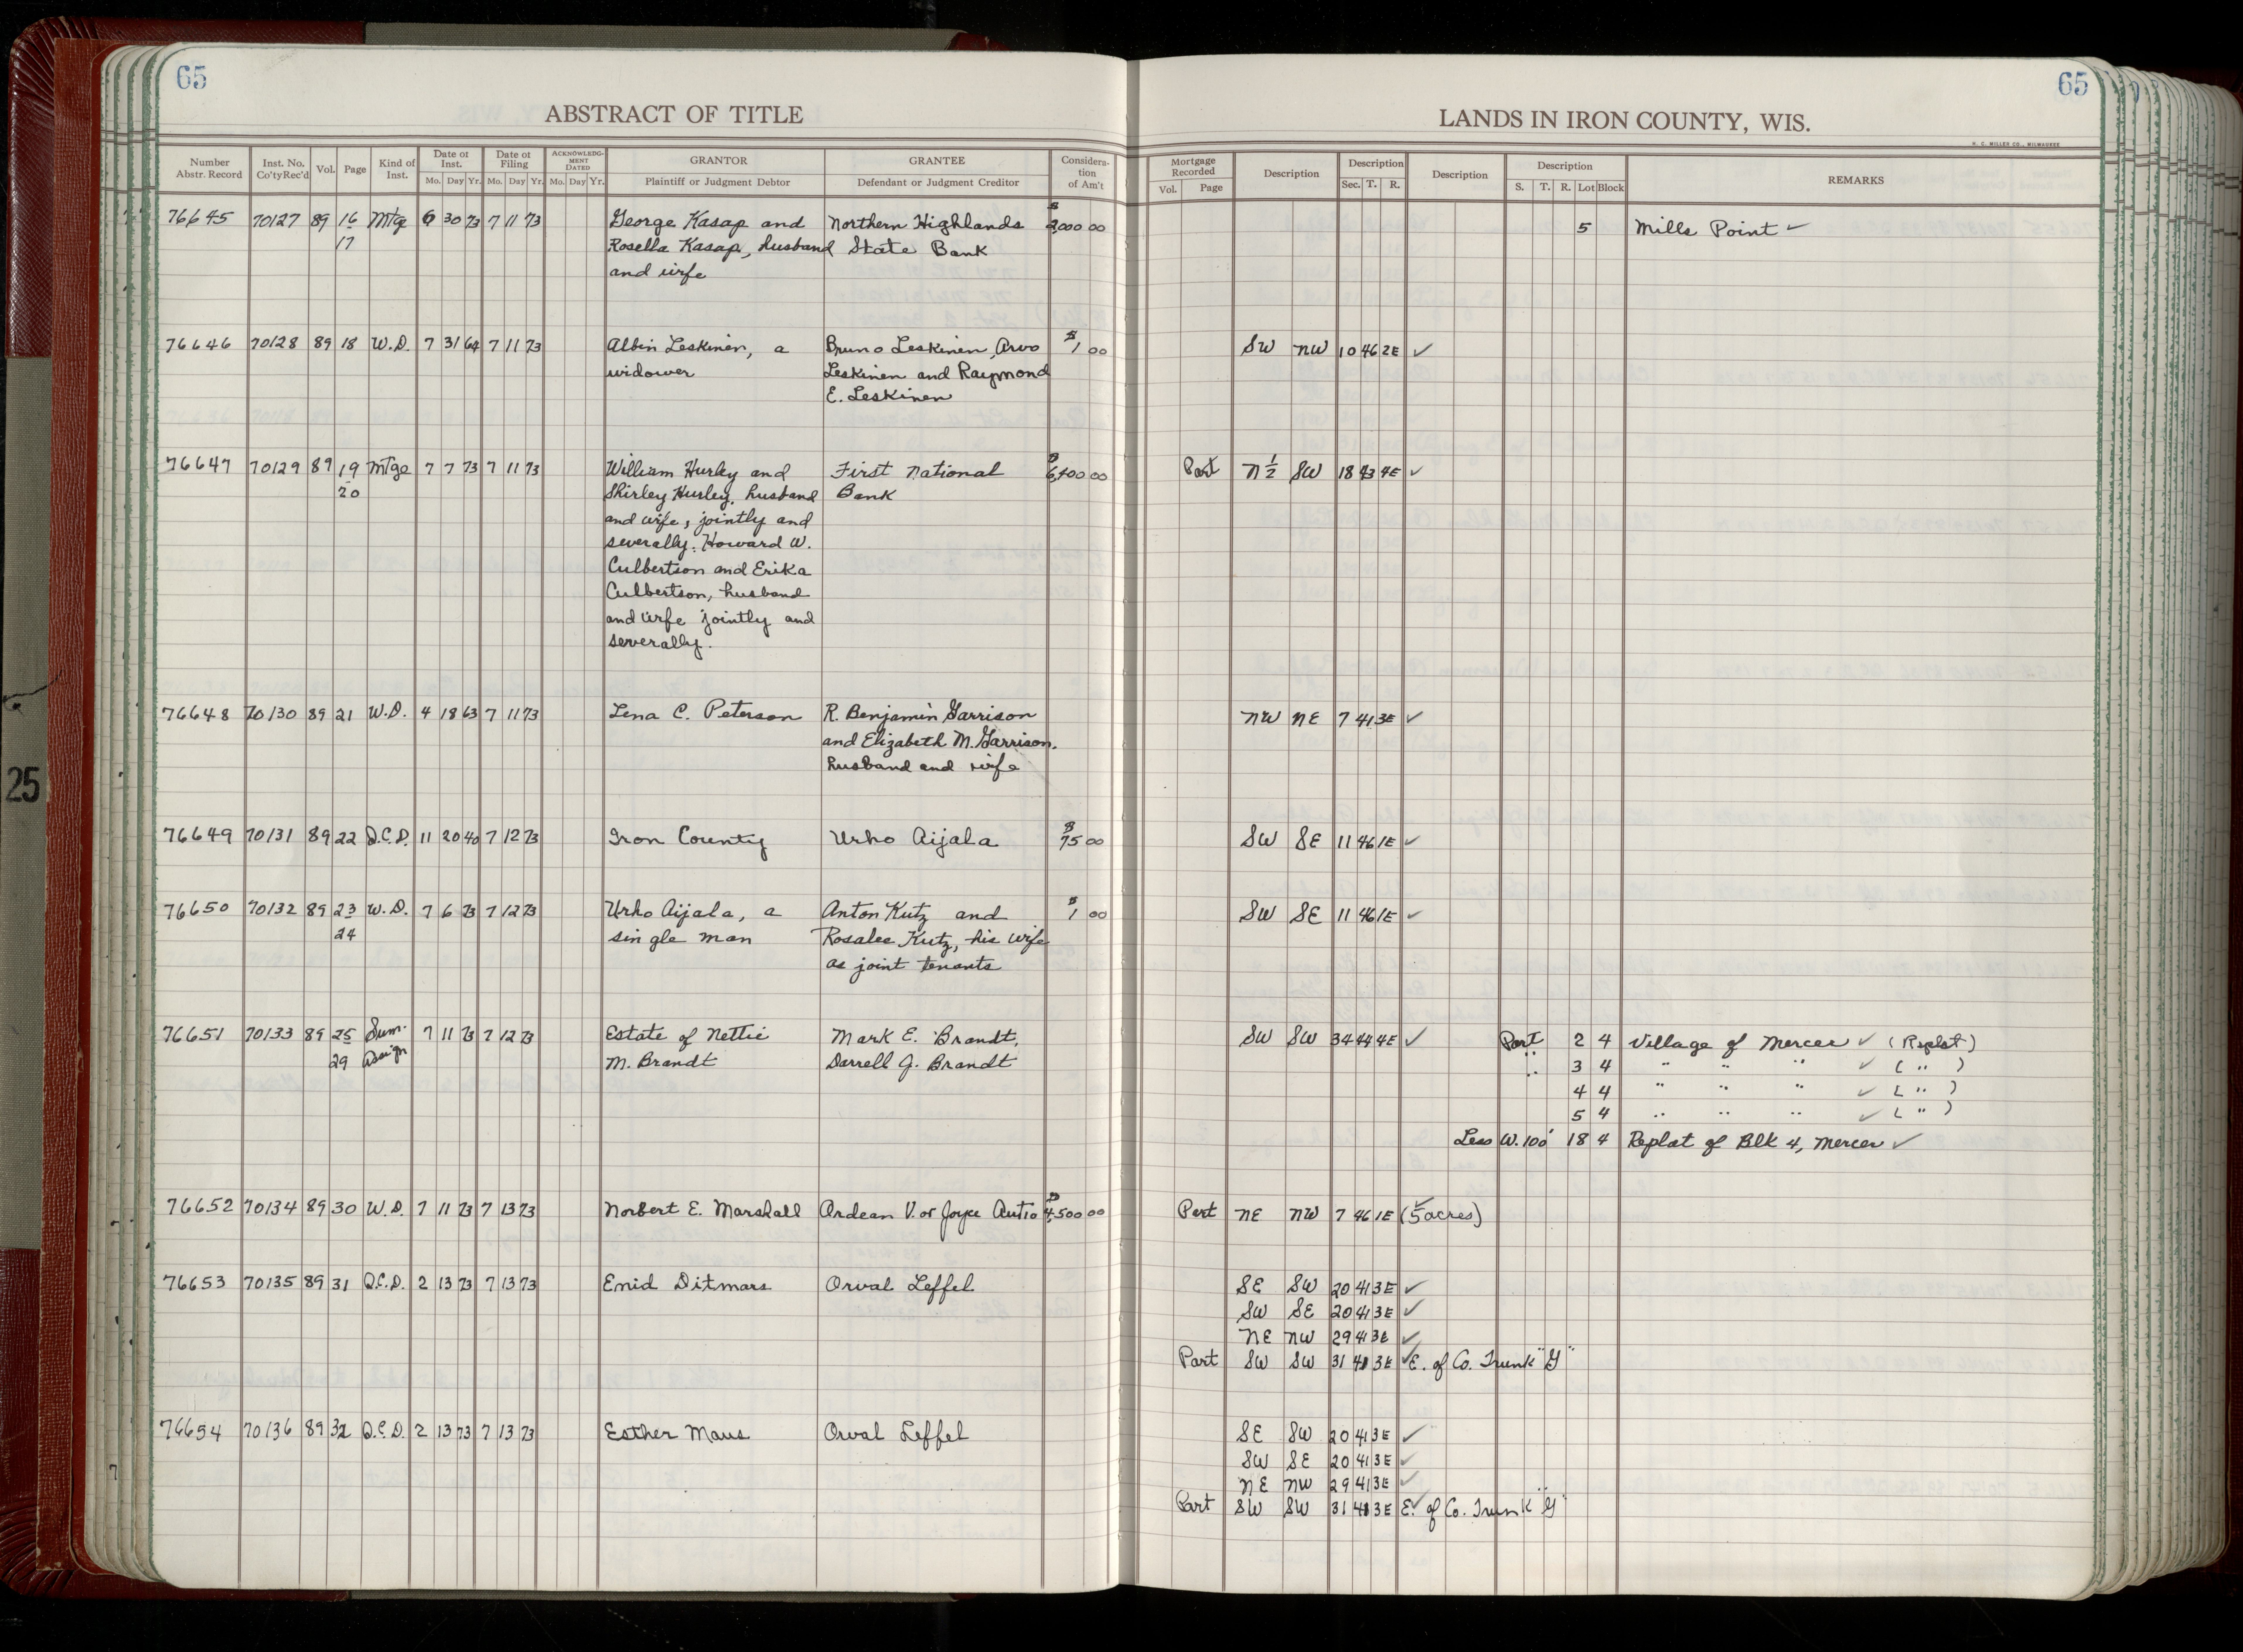 65
65
ABSTRACT OF TITLE
LANDS IN IRON COUNTY, WIS.
H. C. MILLER CO., MILWAUKEE
Number Abstr. Record
Inst. No. Co'ty Rec'd
Vol.
Page
Kind of Inst.
Date of Inst.
Mo. Day Yr.
Date of Filing
Mo. Day Yr.
ACKNOWLEDG-MENT DATED
Mo. Day Yr.
GRANTOR
Plaintiff or Judgment Debtor
GRANTEE
Defendant or Judgment Creditor
Considera-tion of Am't
Mortgage Recorded
Vol. Page
Description
Description
Sec. T. R.
Description
Description
S. T. R. Lot Block
REMARKS
76645 70127 89 16 Mtge 6 30 73 7 11 73 George Kasap and Northern Highlands $ 2,000 00 5 Mills Point ✓
17 Rosella Kasap, husband State Bank
and wife
76646 70128 89 18 W.D. 7 31 64 7 11 73 Albin Leskinen, a Bruno Leskinen, Arvo $ 1 00 SW NW 10 46 2E ✓
widower Leskinen and Raymond
E. Leskinen
76647 70129 89 19 Mtge 7 7 73 7 11 73 William Hurley and First National $ 6,400 00 Part N½ SW 18 43 4E ✓
20 Shirley Hurley, husband Bank
and wife, jointly and
severally. Howard W.
Culbertson and Erika
Culbertson, husband
and wife jointly and
severally.
76648 70130 89 21 W.D. 4 18 63 7 11 73 Lena C. Peterson R. Benjamin Garrison NW NE 7 41 3E ✓
and Elizabeth M. Garrison,
husband and wife
76649 70131 89 22 Q.C.D. 11 20 40 7 12 73 Iron County Urho Aijala $ 75 00 SW SE 11 46 1E ✓
76650 70132 89 23 W.D. 7 6 73 7 12 73 Urho Aijala, a Anton Kutz and $ 1 00 SW SE 11 46 1E ✓
24 single man Rosalee Kutz, his wife
as joint tenants
76651 70133 89 25 Sum. 7 11 73 7 12 73 Estate of Nettie Mark E. Brandt, SW SW 34 44 4E ✓ Part 2 4 Village of Mercer ✓ (Replat)
29 Assign M. Brandt Darrell J. Brandt " 3 4 " " " ✓ ( " )
4 4 " " " ✓ ( " )
5 4 " " " ✓ ( " )
Less W. 100' 18 4 Replat of Blk 4, Mercer ✓
76652 70134 89 30 W.D. 7 11 73 7 13 73 Norbert E. Marshall Ardean V. or Joyce Autio $ 4,500 00 Part NE NW 7 46 1E (5 acres) ✓
76653 70135 89 31 Q.C.D. 2 13 73 7 13 73 Enid Ditmars Orval Leffel SE SW 20 41 3E ✓
SW SE 20 41 3E ✓
NE NW 29 41 3E ✓
Part SW SW 31 41 3E ✓ E. of Co. Trunk "G"
76654 70136 89 32 Q.C.D. 2 13 73 7 13 73 Esther Maus Orval Leffel SE SW 20 41 3E ✓
SW SE 20 41 3E ✓
NE NW 29 41 3E ✓
Part SW SW 31 41 3E E. ✓ of Co. Trunk "G"
25